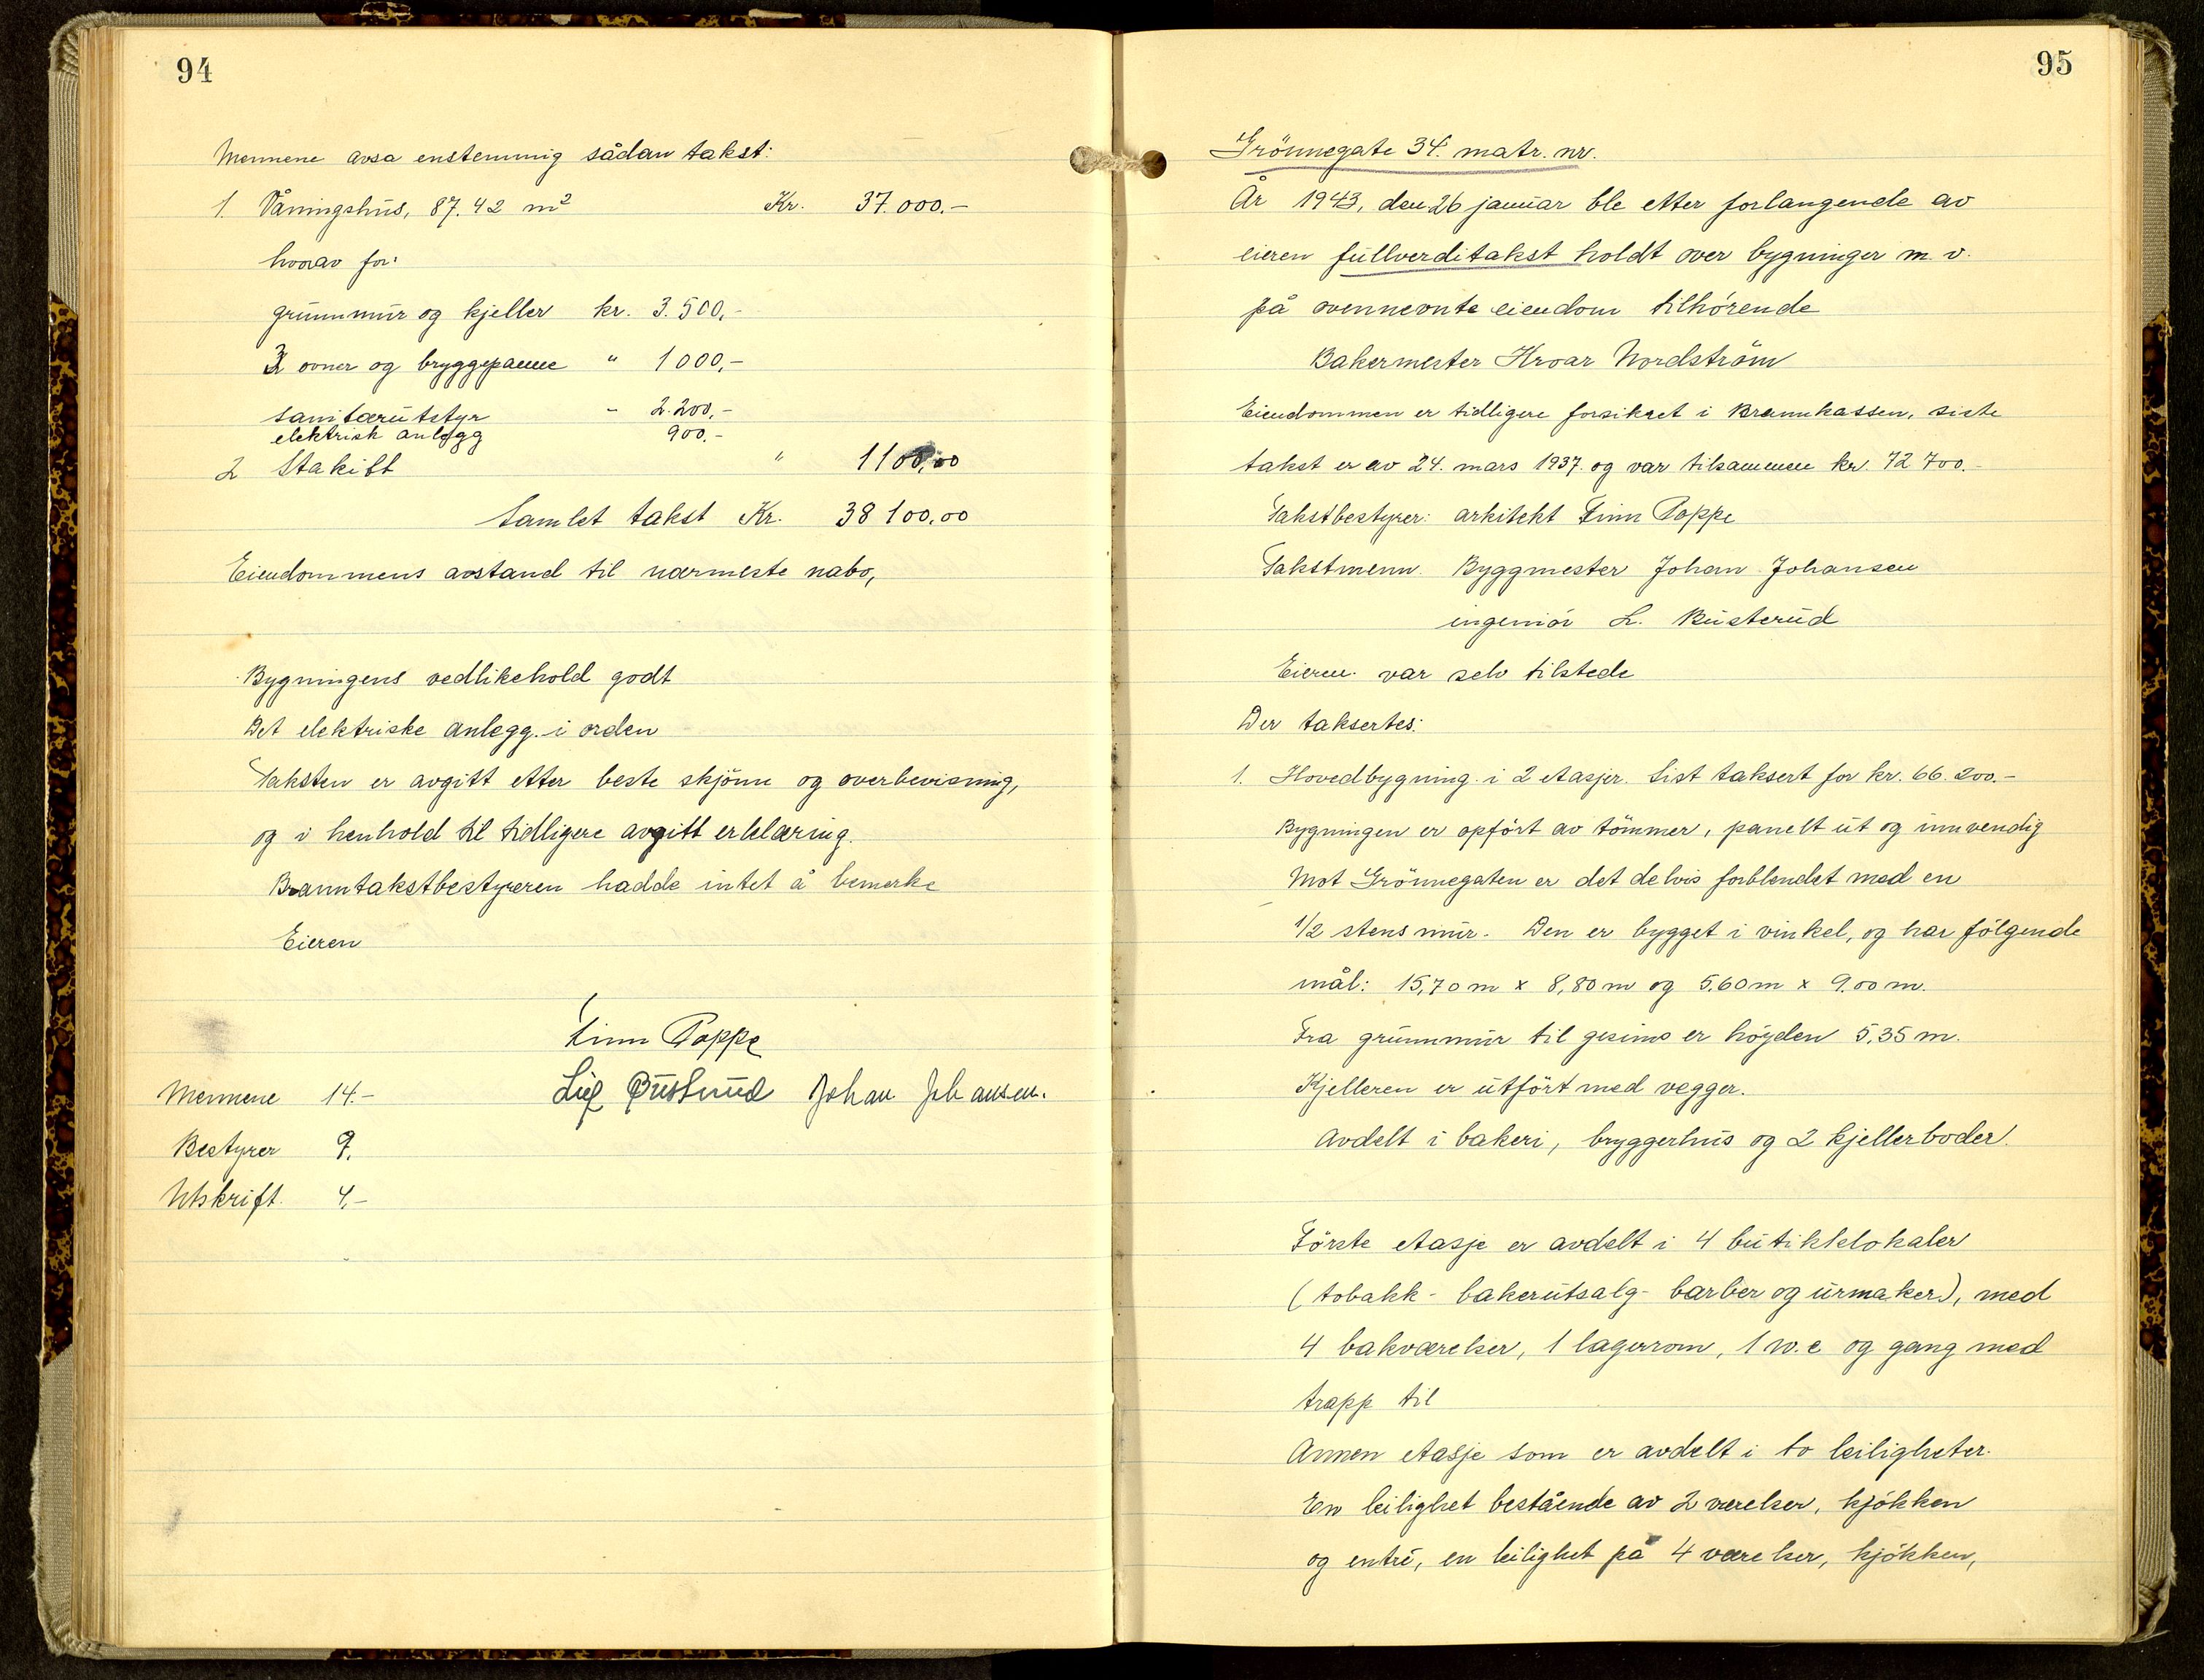 94
Mennene avsa enstemmig sådan takst:
1. Våningshus, 87.42 m² Kr. 37.000.-
hvorav for:
grunnmur og kjeller kr. 3.500,-
3 ovner og bryggepanne " 1000,-
sanitærutstyr - 2.200,-
elektrisk anlegg 900.-
2 Stakitt " 1100,00
Samlet takst Kr. 38100.00
Eiendommens avstand til nærmeste nabo,
Bygningens vedlikehold godt
Det elektriske anlegg i orden
Taksten er avgitt etter beste skjönn og overbevisning,
og i henhold til tidligere avgitt erklæring.
Branntakstbestyreren hadde intet å bemerke
Eieren
Finn Poppe
Leif Busterud Johan Johansen.
Mennene 14.-
Bestyrer 9.
Utskrift. 4.-
95
Grönnegate 34. matr. nr.
År 1943, den 26 januar ble etter forlangende av
eieren fullverditakst holdt over bygninger m. v.
på ovennevnte eiendom tilhörende
Bakermester Hroar Nordström
Eiendommen er tidligere forsikret i Brannkassen, siste
takst er av 24. mars 1937. og var tilsammen kr. 72 700.-
Takstbestyrer: arkitekt Finn Poppe
Takstmenn. Byggmester Johan Johansen
ingeniör L. Busterud
Eieren var selv tilstede
Der taksertes:
1. Hovedbygning i 2 etasjer. Sist taksert for kr. 66.200.-
Bygningen er opfört av tömmer, panelt ut og innvendig
Mot Grönnegaten er det delvis forblendet med en
1/2 stens mur. Den er bygget i vinkel, og har fölgende
mål: 15,70 m x 8,80 m og 5.60 m x 9.00 m.
Fra grunnmur til gesims er höyden 5.35 m.
Kjelleren er utfört med vegger.
Avdelt i bakeri, bryggerhus og 2 kjellerboder.
Förste etasje er avdelt i 4 butikklokaler
(tobakk - bakerutsalg - barber og urmaker), med
4 bakværelser, 1 lagerrom, 1 w.c og gang med
trapp til
Annen etasje som er avdelt i to leiligheter.
En leilighet bestående av 2 værelser, kjökken
og entré, en leilighet på 4 værelser, kjökken,